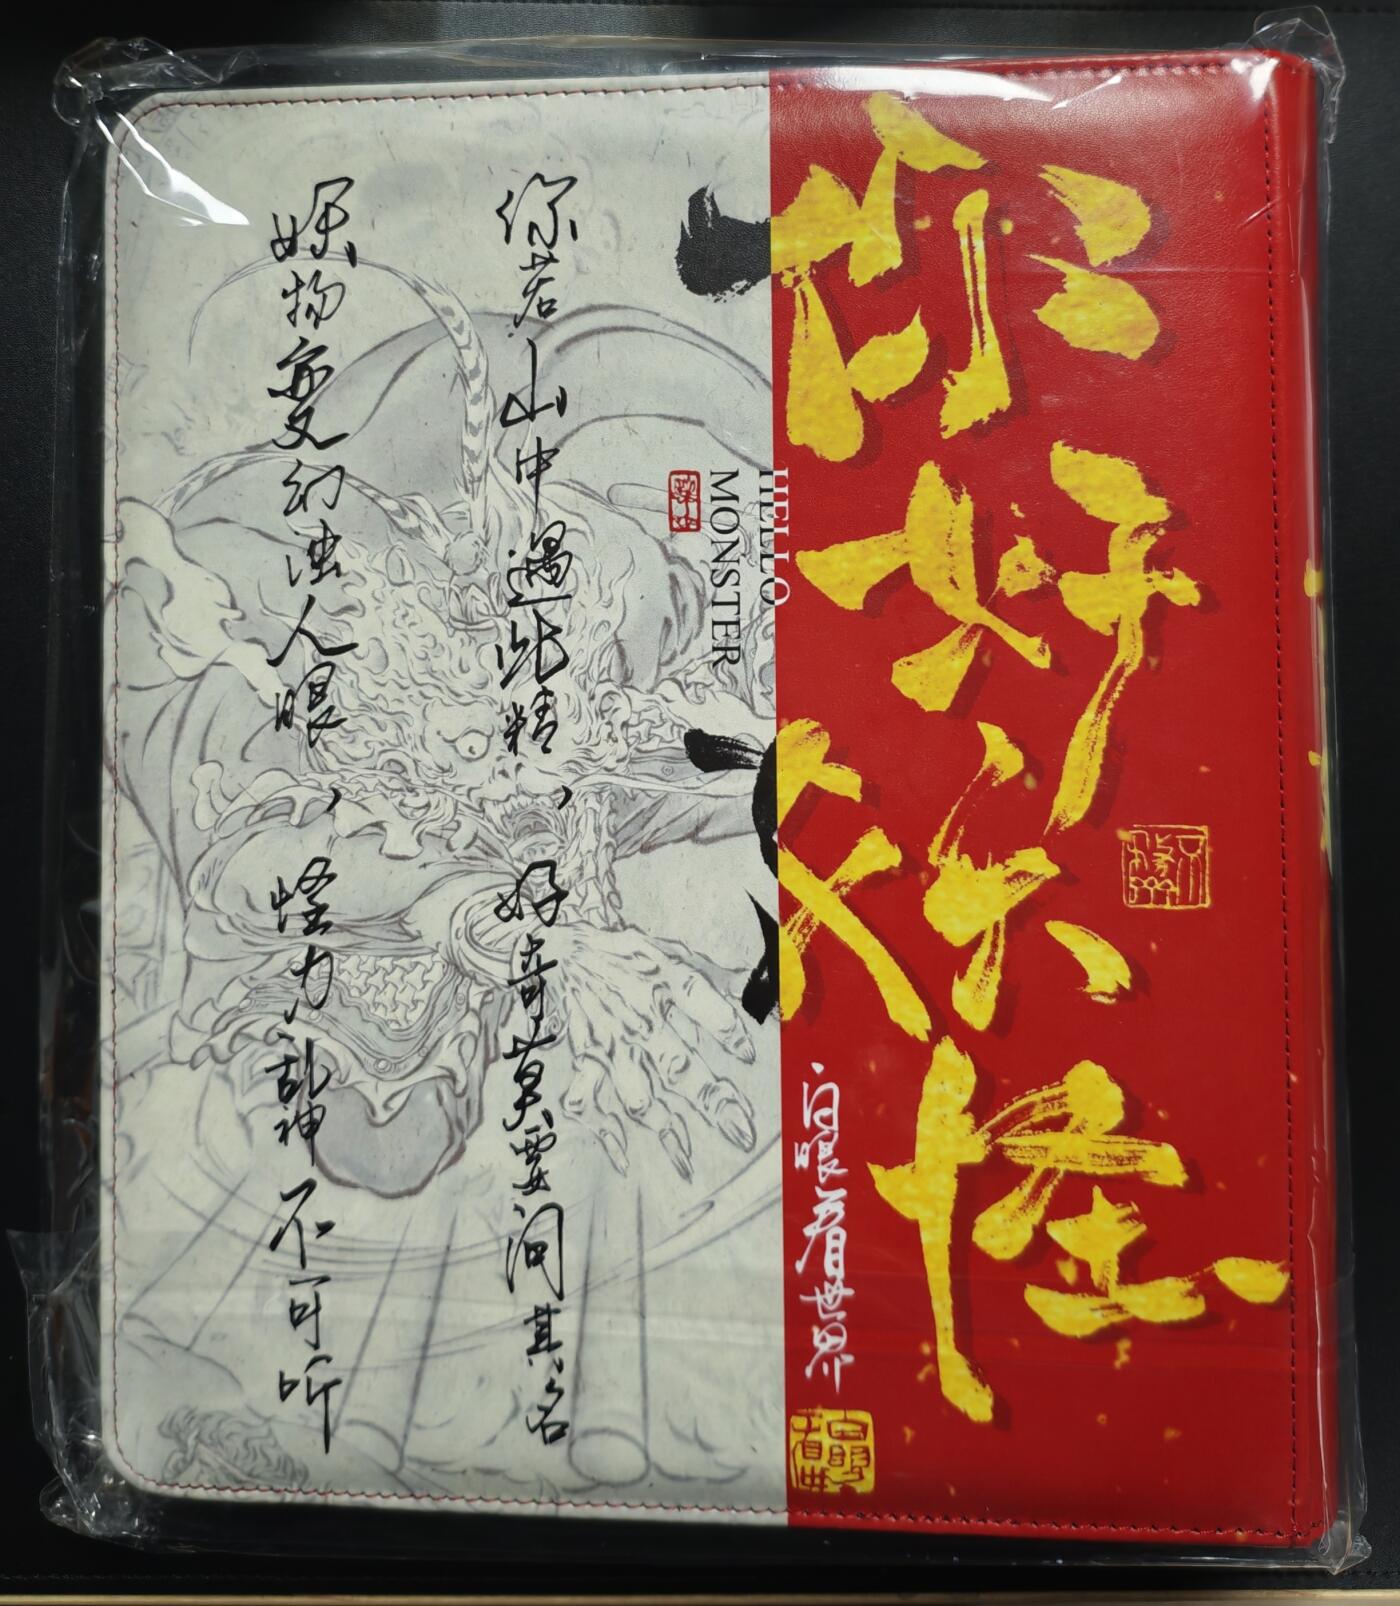 你好妖怪
白眼看世界
HELLO
MONSTER
你若山中遇此精，好奇莫要问其名
妖物变幻浊人眼，怪力乱神不可听